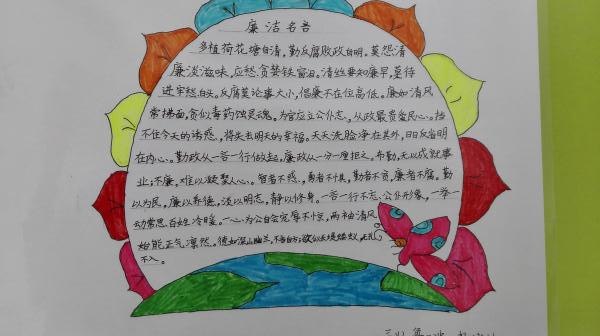 廉洁名言
多植荷花塘自清，勤反腐败政自明。莫怨清
廉淡滋味，应愁贪婪铁窗泪。清丝要知廉早，莫待
进牢愁白头。反腐莫论事大小，倡廉不在位高低。廉如清风
常拂面，贪似毒药蚀灵魂。为官应立公仆志，从政最贵爱民心。挡
不住今天的诱惑，将失去明天的幸福。天天洗脸净在其外，日日反省明
在内心。勤政从一言一行做起，廉政从一分一厘拒之。不勤，无以成就事
业；不廉，难以凝聚人心。智者不惑，勇者不惧，勤者不贫，廉者不腐。勤
以为民，廉以养德，淡以明志，静以修身。一言一行不忘公仆形象，一举一
动常思百姓冷暖。一心为公自会宠辱不惊，两袖清风
始能正气凛然。德如深山幽兰，不言自芳；欲似长堤蝼蚁，无孔
不入。